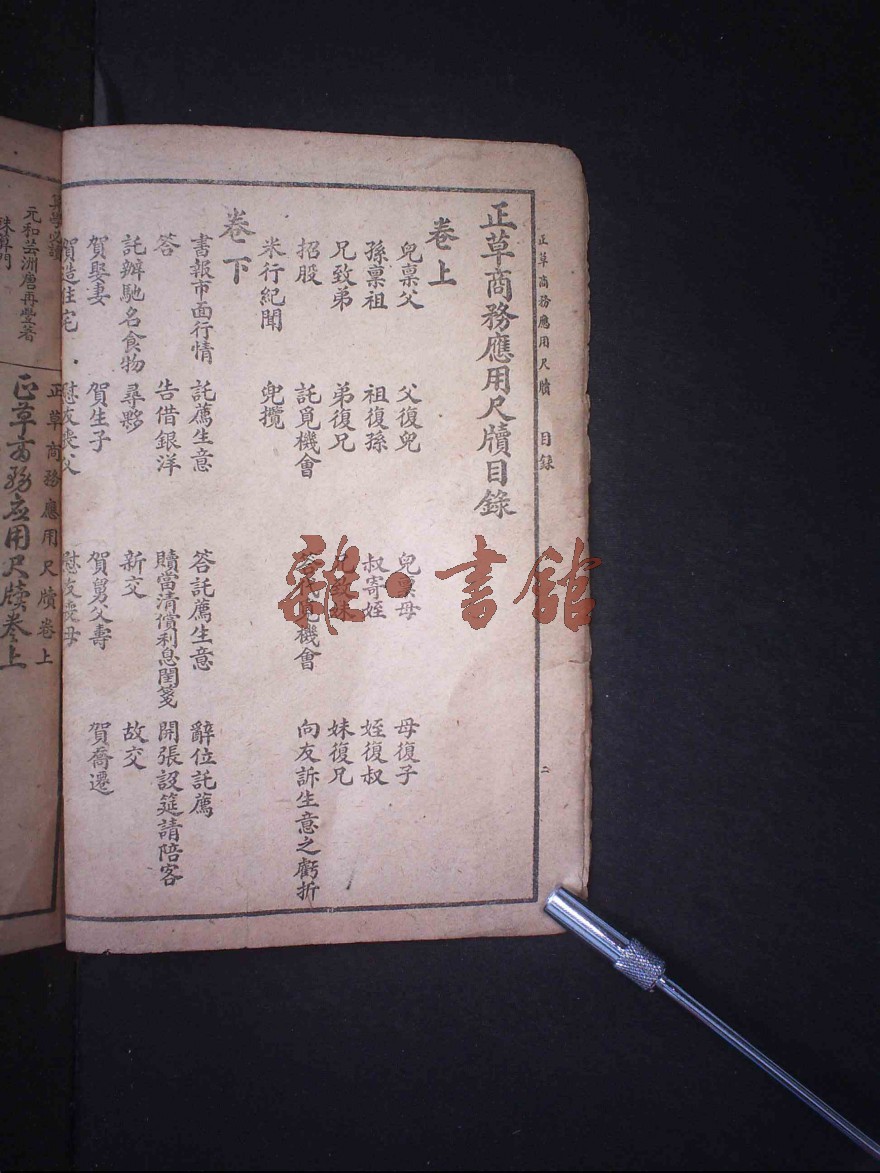 正草商務應用尺牘 目錄 二
正草商務應用尺牘目錄
卷上
兒稟父 父復兒 兒稟母 母復子
孫稟祖 祖復孫 叔寄姪 姪復叔
兄致弟 弟復兄 兄致妹 妹復兄
招股 託覓機會 答代覓機會 向友訴生意之虧折
米行紀聞 兜攬
卷下
書報市面行情 託薦生意 答託薦生意 辭位託薦
答 告借銀洋 贖當清償利息閨箋 開張設筵請陪客
託辦馳名食物 尋夥 新交 故交
賀娶妻 賀生子 賀舅父壽 賀喬遷
賀造住宅 慰友喪父 慰友喪母
正草商務應用尺牘卷上
元和芸洲唐再豐著
正草商務應用尺牘卷上
雜·書館